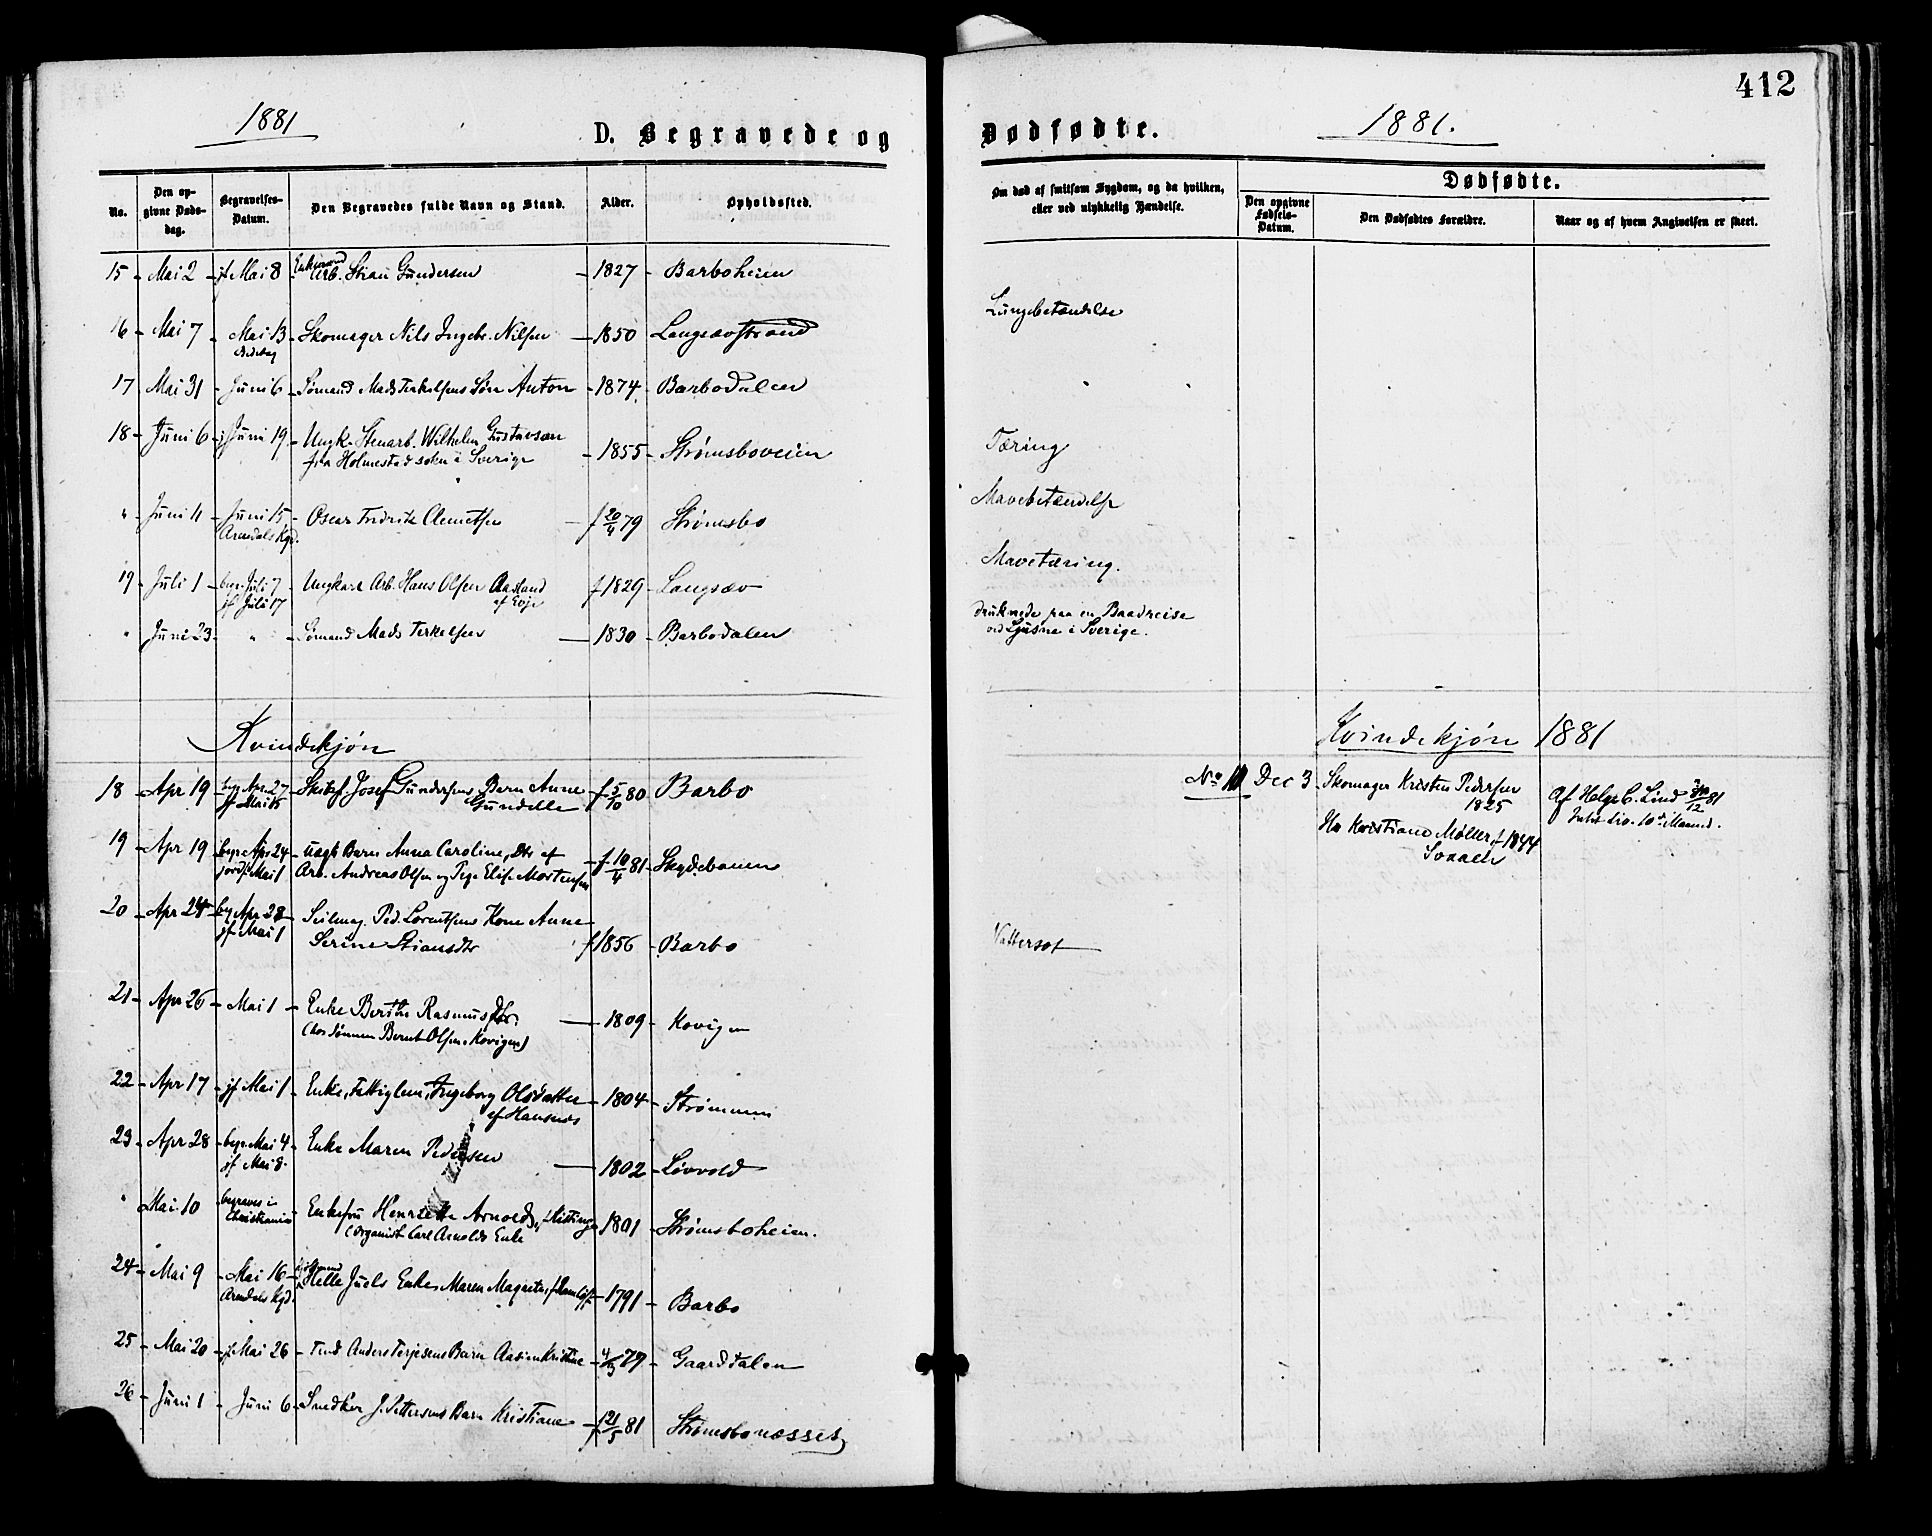 412
1881
D. Begravede og
Dødfødte.
1881.
No.
Den opgivne Dødsdag.
Begravelses-Datum.
Den Begravedes fulde Navn og Stand.
Alder.
Opholdssted.
Om død af smitsom Sygdom, og da hvilken, eller ved ulykkelig Hændelse.
Dødfødte.
Den opgivne Fødsels-Datum.
Den Dødfødtes Forældre.
Naar og af hvem Angivelsen er skeet.
15 - Mai 2 - jf Mai 8 - Enkemand Arb. Stian Gundersen - 1827 - Barboheien
16 - Mai 7 - Mai 13 - Skomager Nils Ingebr. Nilsen - 1850 Langsævstrand
Lungebetændelse
17 Mai 31 - Juni 6 - Sømand Mads Terkelsens Søn Anton - 1874 - Barbodalen
18 - Juni 6 - jf Juni 19 - Ungk. Stenarb. Wilhelm Gustavsen
fra Holmestad sokn i Sverige - 1855 - Strømsboveien
Tæring
" Juni 11 - Juni 15 - Oscar Fredrik Clemetsen - f 20/4 79 Strømsbo
Arendals Kgd.
Mavebetændelse
19 - Juli 1 - begr. Juli 7 - Ungkarl Arb. Hans Olsen Aasland f 1829 - Langsæv
jf Juli 17 af Evje
Mavetæring.
" Juni 23 - " - Sømand Mads Terkelsen - 1830 - Barbodalen
druknede paa en Baadreise
ved Ljusne i Sverige.
Kvindekjøn
Kvindekjøn 1881
18 - Apr 19 - begr. Apr. 27 - Skibsf. Josef Gundersens Barn Anne
jf Mai 15 Gundelle f 5/10 80 Barbo
No 1 Dec 3 Skomager Kristen Pedersen
1825
Af Helge C. Lind 81
10de Maaned.
Hu Kristiane Møller f 1844
19 - Apr 19 - begr. Apr 24 - uægte Barn Anna Caroline, Dtr af
jordf. Mai 1 Arb. Andreas Olsen og Pige Elise Mortensen f 10/4 81 - Skydebanen
20 - Apr 24 - beg Apr 28 - Seilmag. Ped. Lorentsens Kone Anne
jf Mai 1 Serine Stiansdtr f 1856 - Barbo
Vattersot
21 - Apr 26 - Mai 1 - Enke Berthe Rasmusdtr.
(hos Sønnen Bernt Olsen Kovigen) - 1809 - Kovigen
22 - Apr 17 - jf Mai 1 - Enke, Fattiglem, Ingeborg Olsdatter - 1804 - Strømmen
23 - Apr 28 - begr. Mai 4 - Enke Maren Pedersen
jf Mai 8 - 1802 - Løvvold
" Mai 10 begraves i Christiania - Enkefru Henriette Arnold, f 1801 - Strømsboheien.
(Organist Carl Arnolds Enke
24 - Mai 9 - Mai 16 - Helle Juels Enke Maren Magrete, - 1791 - Barbo
Arendals Kgd.
25 - Mai 20 - jf Mai 26 - Tind Anders Terjesens Barn Aasine Kristine - 4/3 79 - Gaarddalen
26 - Juni 1 - Juni 6 - Snedker J. Pettersens Barn Kristiane - f 21/5 81 Strømsbonæsset